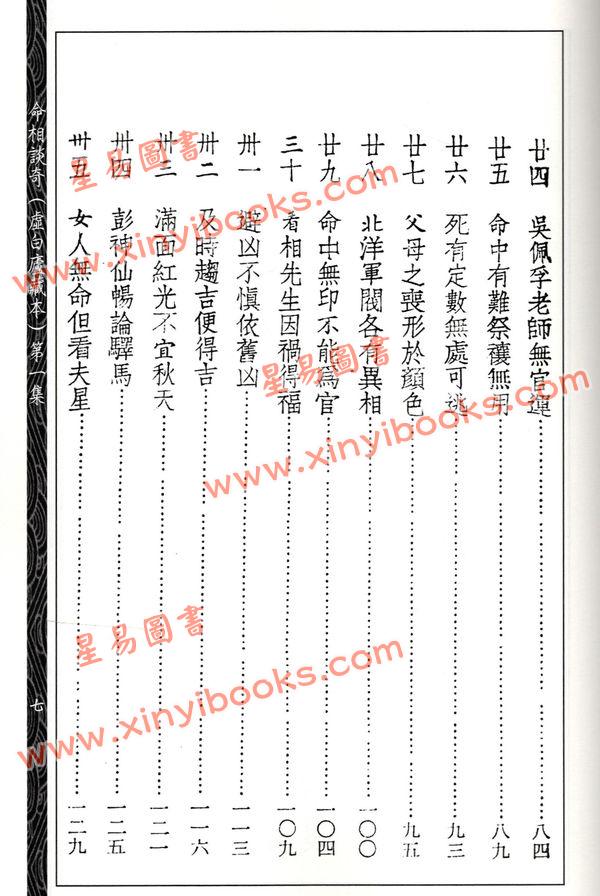 廿四 吳佩孚老師無官運……八四
廿五 命中有難祭禳無用……八九
廿六 死有定數無處可逃……九三
廿七 父母之喪形於顏色……九五
廿八 北洋軍閥各有異相……一〇〇
廿九 命中無印不能爲官……一〇四
三十 看相先生因禍得福……一〇九
卅一 避凶不慎依舊凶……一一三
卅二 及時趨吉便得吉……一一六
卅三 滿面紅光不宜秋天……一二一
卅四 彭神仙暢論驛馬……一二五
卅五 女人無命但看夫星……一二九
命相談奇(虛白廬藏本)第一集 七
星易圖書
www.xinyibooks.com
星易圖書
www.xinyibooks.com
星易圖書
www.xinyibooks.com